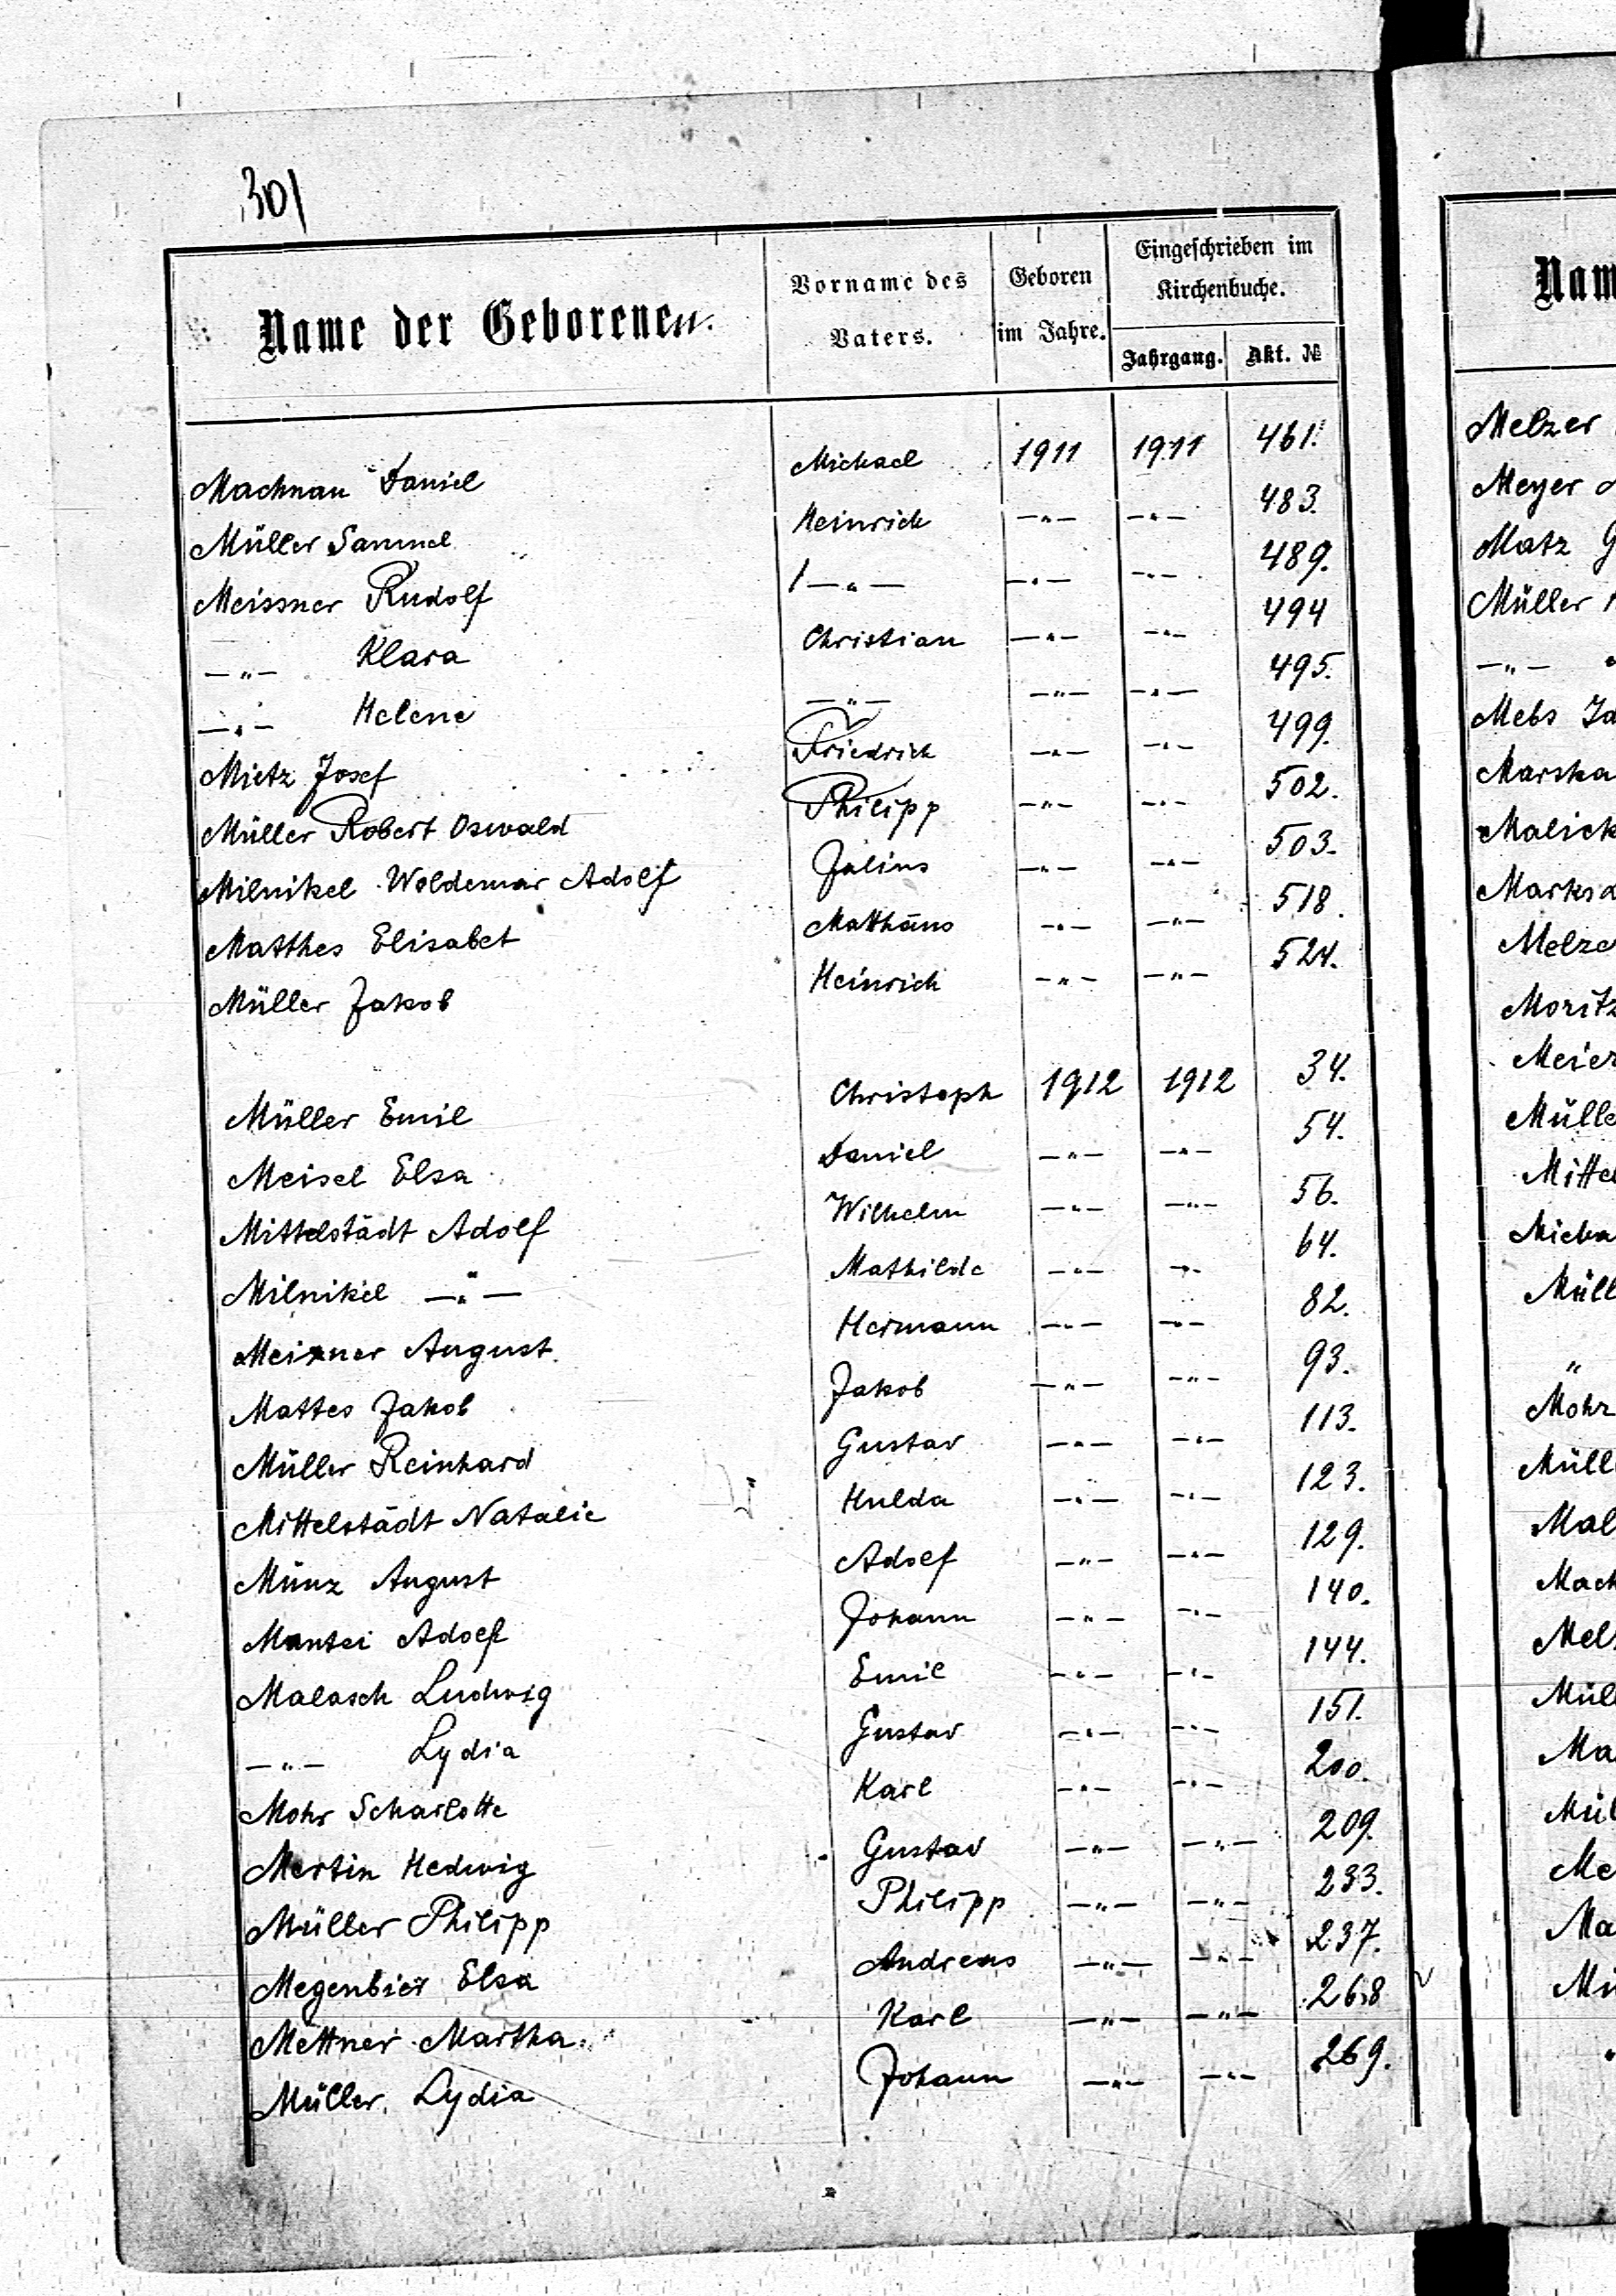 301
Name der Geborenen.
Vorname des Vaters.
Geboren im Jahre.
Eingeschrieben im Kirchenbuche.
Jahrgang.
Akt. №
Machnau Daniel Michael 1911 1911 461.
Müller Samuel Heinrich —"— —"— 483.
Meissner Rudolf /—"— —"— —"— 489.
—"— Klara Christian —"— —"— 494
—"— Helene —"— —"— —"— 495.
Mietz Josef Friedrich —"— —"— 499.
Müller Robert Oswald Philipp —"— —"— 502.
Milnikel Woldemar Adolf Julius —"— —"— 503.
Matthes Elisabet Matthäus —"— —"— 518.
Müller Jakob Heinrich —"— —"— 524.
Müller Emil Christoph 1912 1912 34.
Meisel Elsa Daniel —"— —"— 54.
Mittelstädt Adolf Wilhelm —"— —"— 56.
Milnikel —"— Mathilde —"— —"— 64.
Meixner August Hermann —"— —"— 82.
Mattes Jakob Jakob —"— —"— 93.
Müller Reinhard Gustav —"— —"— 113.
Mittelstädt Natalie Hulda —"— —"— 123.
Münz August Adolf —"— —"— 129.
Mantei Adolf Johann —"— —"— 140.
Malasch Ludwig Emil —"— —"— 144.
—"— Lydia Gustav —"— —"— 151.
Mohr Scharlotte Karl —"— —"— 200.
Mertin Hedwig Gustav —"— —"— 209.
Müller Philipp Philipp —"— —"— 233.
Megenbier Elsa Andreas —"— —"— 237.
Mettner Martha Karl —"— —"— 268
Müller Lydia Johann —"— —"— 269.
Nam
Melzer
Meyer
Matz G
Müller
—"—
Mebs
Marska
Malick
Marks
Melze
Moritz
Meier
Mülle
Mittel
Micha
Müll
"
Mohr
Müll
Mal
Mach
Mel
Mül
Ma
Mül
Me
Ma
Mü